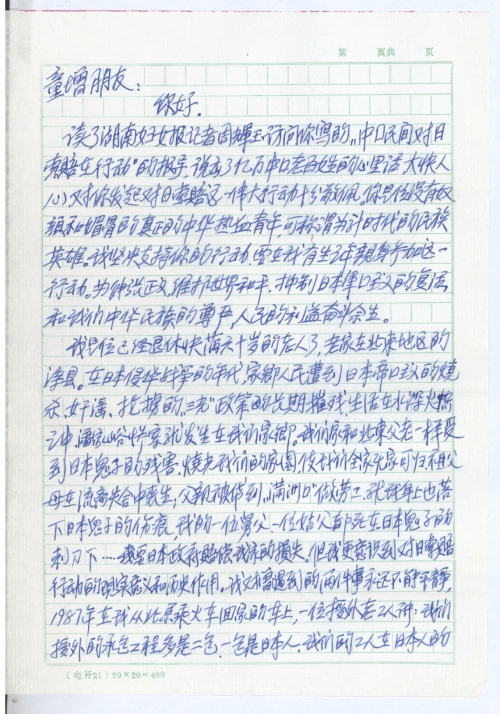 第 页共 页
童增朋友：
你好。
读了湖南妇女报记者周辉玉访问你写的“中国民间对日
索赔在行动”的报导，说出了亿万中国老百姓的心里话，大快人
心！对你发起对日索赔这一伟大行动十分敬佩。你是位没有奴
颜和媚骨的真正的中华热血青年，可称谓为新时代的民族
英雄。我坚决支持你的行动，要在我有生之年亲身参加这一
行动。为伸张正义，维护世界和平，抑制日本军国主义的复活，
和我们中华民族的尊严，人民的利益奋斗余生。
我是位已经退休快满六十岁的老人了，老家在北东地区的
泽县。在日本侵华战争的年代，家乡人民遭到日本帝国主义的烧
杀、奸淫、抢掠的“三光”政策的长期摧残，生活在水深火热
之中，潘家峪惨案就发生在我们家乡。我们家和北东父老一样受
到日本鬼子的残害，烧光我们的家园，使我们全家无家可归，祖父
母在流离失会中丧生，父亲被俘到“满洲”做劳工，我身上也落
下日本鬼子的伤痕，我的一位舅父一位姑父都死在日本鬼子的
刺刀下……我要日本政府赔偿我家的损失。但我更意识到对日索赔
行动的现实意义和历史作用。我对曾遇到的两件事永远不能平静，
1987年在我从北京乘火车回家的车上，一位援外老工人讲：我们
援外的承包工程多是二包，一包是日本人，我们的工人在日本人的
（电开21）20×20＝400